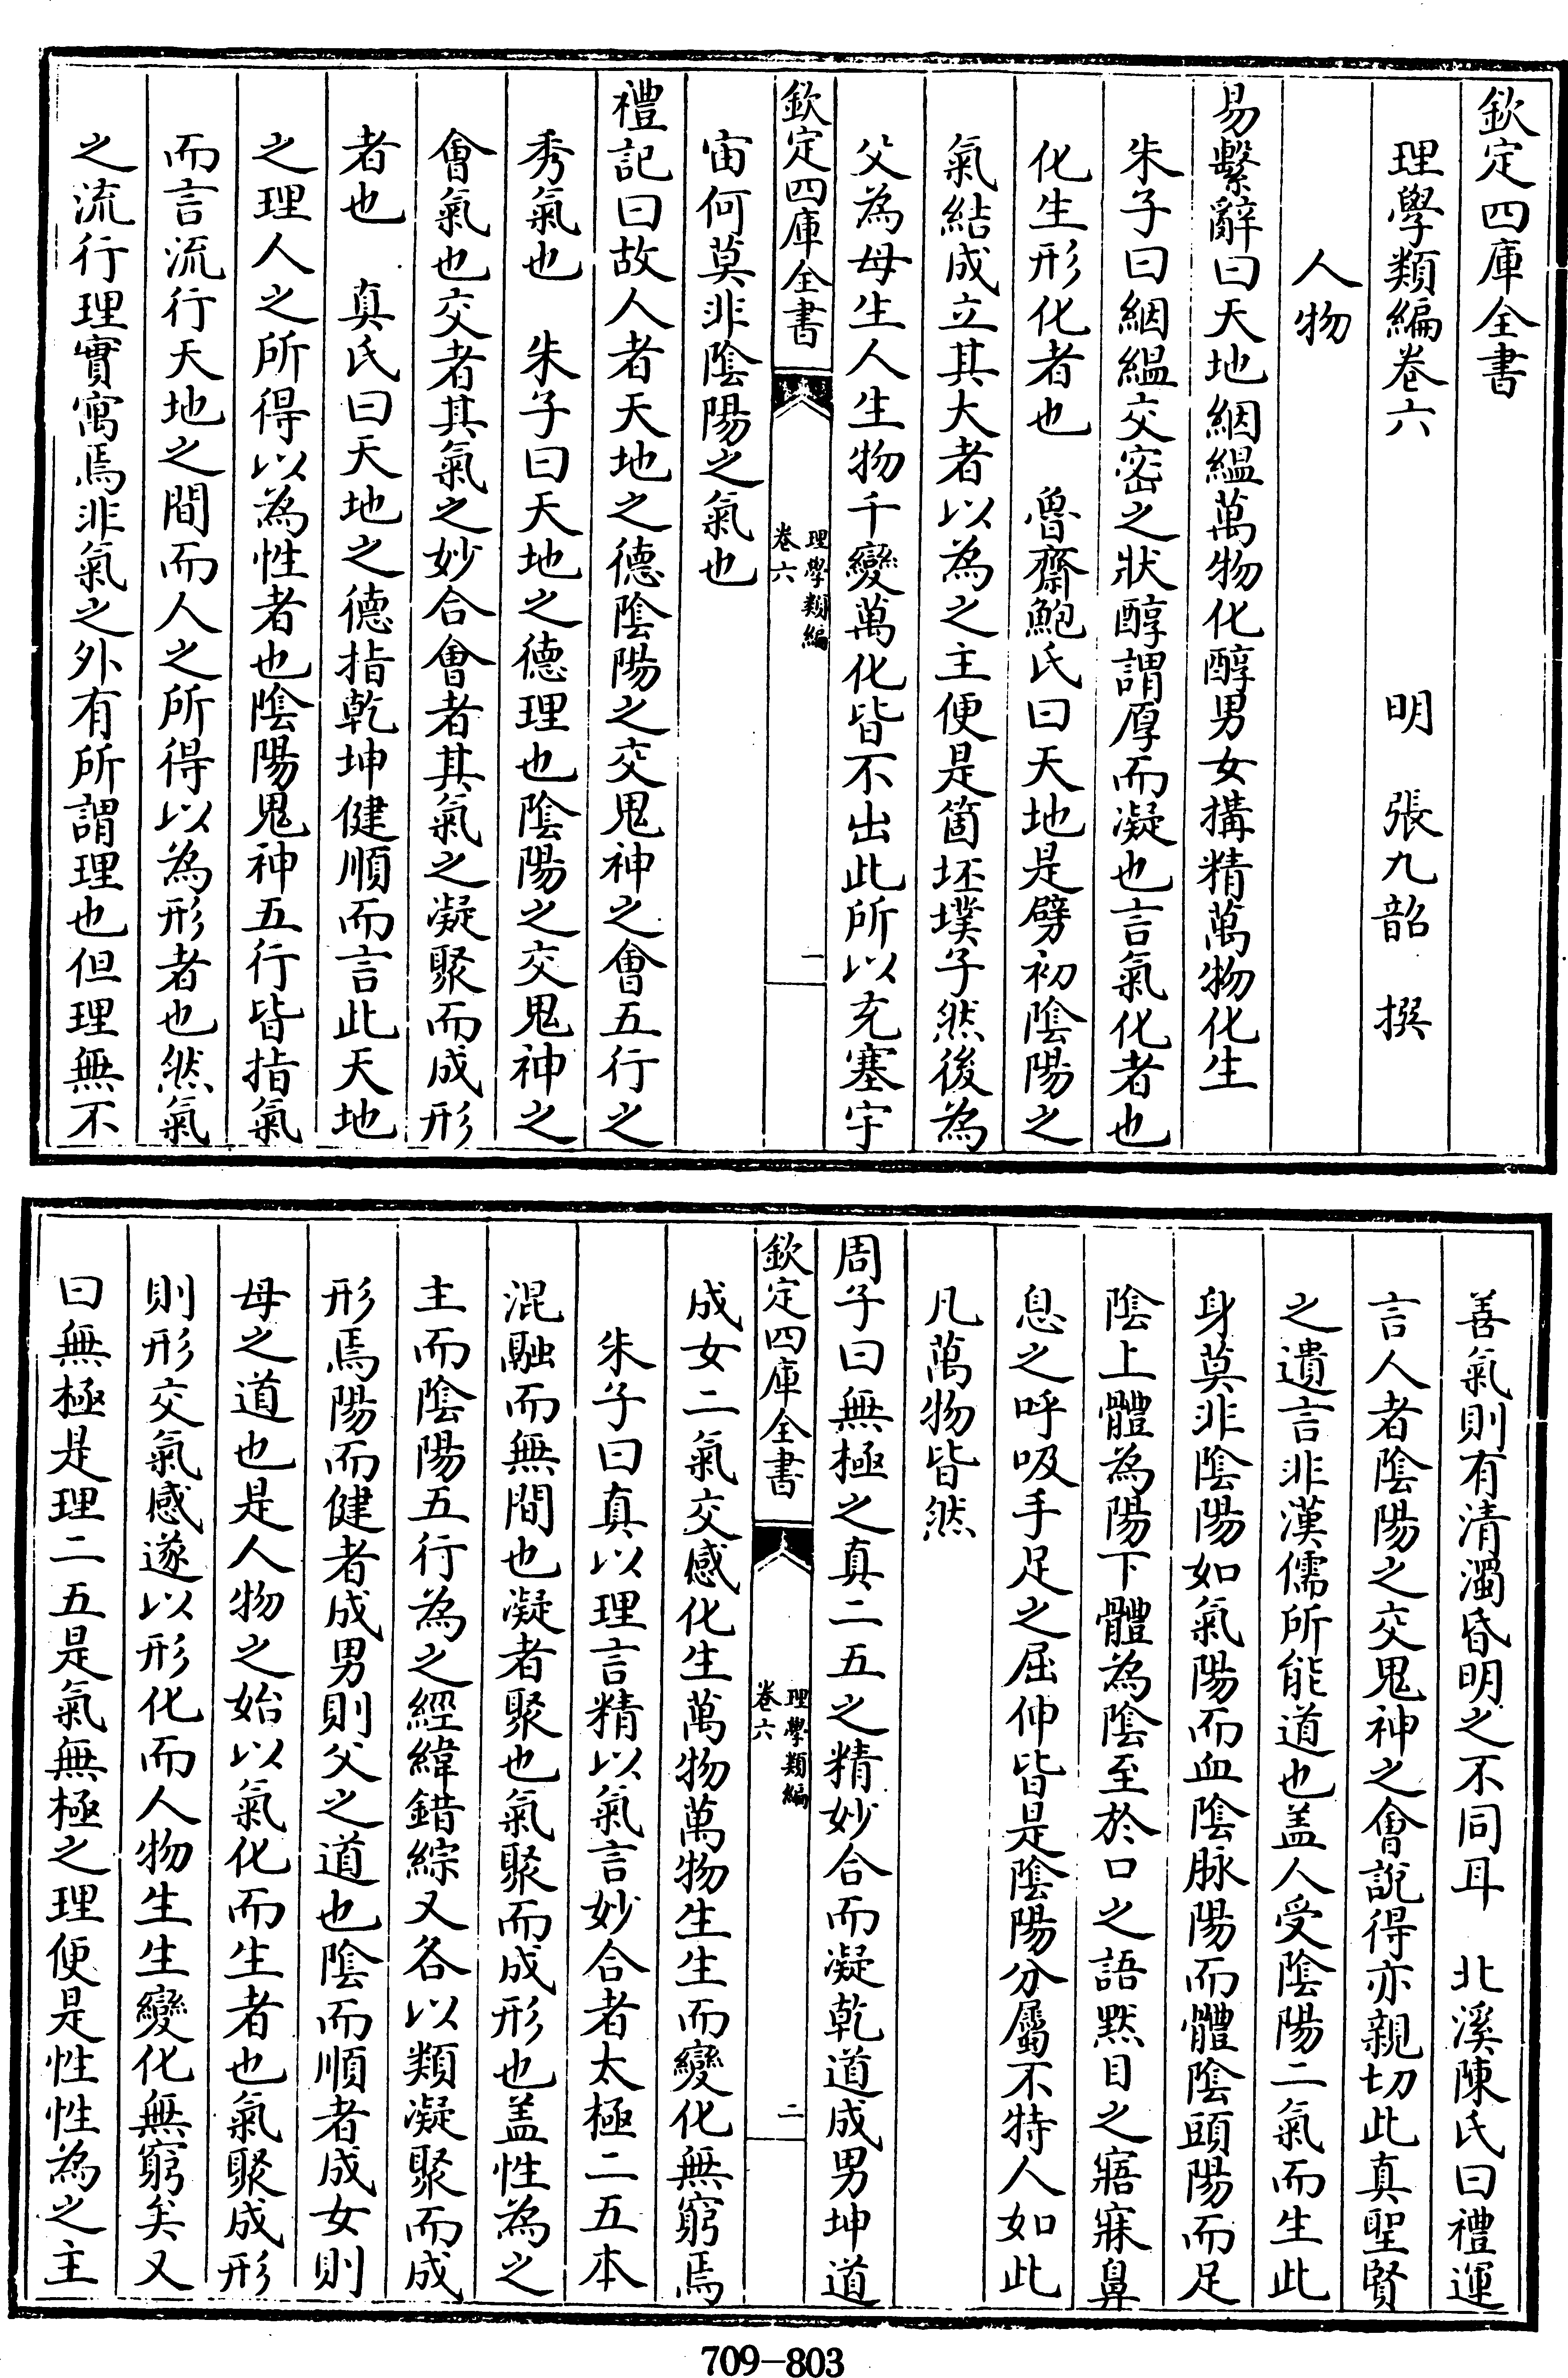 欽定四庫全書
理學類編卷六　明　張九韶　撰
人物
易繫辭曰天地絪縕萬物化醇男女搆精萬物化生
朱子曰絪縕交密之狀醇謂厚而凝也言氣化者也
化生形化者也　魯齋鮑氏曰天地是劈初陰陽之
氣結成立其大者以為之主便是箇坯墣子然後為
父為母生人生物千變萬化皆不出此所以充塞宇
欽定四庫全書
理學類編
卷六
一
宙何莫非陰陽之氣也
禮記曰故人者天地之德陰陽之交鬼神之會五行之
秀氣也　朱子曰天地之德理也陰陽之交鬼神之
會氣也交者其氣之妙合會者其氣之凝聚而成形
者也　真氏曰天地之德指乾坤健順而言此天地
之理人之所得以為性者也陰陽鬼神五行皆指氣
而言流行天地之間而人之所得以為形者也然氣
之流行理實寓焉非氣之外有所謂理也但理無不
善氣則有清濁昏明之不同耳　北溪陳氏曰禮運
言人者陰陽之交鬼神之會說得亦親切此真聖賢
之遺言非漢儒所能道也盖人受陰陽二氣而生此
身莫非陰陽如氣陽而血陰脉陽而體陰頭陽而足
陰上體為陽下體為陰至於口之語黙目之寤寐鼻
息之呼吸手足之屈伸皆是陰陽分屬不特人如此
凡萬物皆然
周子曰無極之真二五之精妙合而凝乾道成男坤道
欽定四庫全書
理學類編
卷六
二
成女二氣交感化生萬物萬物生生而變化無窮焉
朱子曰真以理言精以氣言妙合者太極二五本
混融而無間也凝者聚也氣聚而成形也盖性為之
主而陰陽五行為之經緯錯綜又各以類凝聚而成
形焉陽而健者成男則父之道也陰而順者成女則
母之道也是人物之始以氣化而生者也氣聚成形
則形交氣感遂以形化而人物生生變化無窮矣又
曰無極是理二五是氣無極之理便是性性為之主
709—803